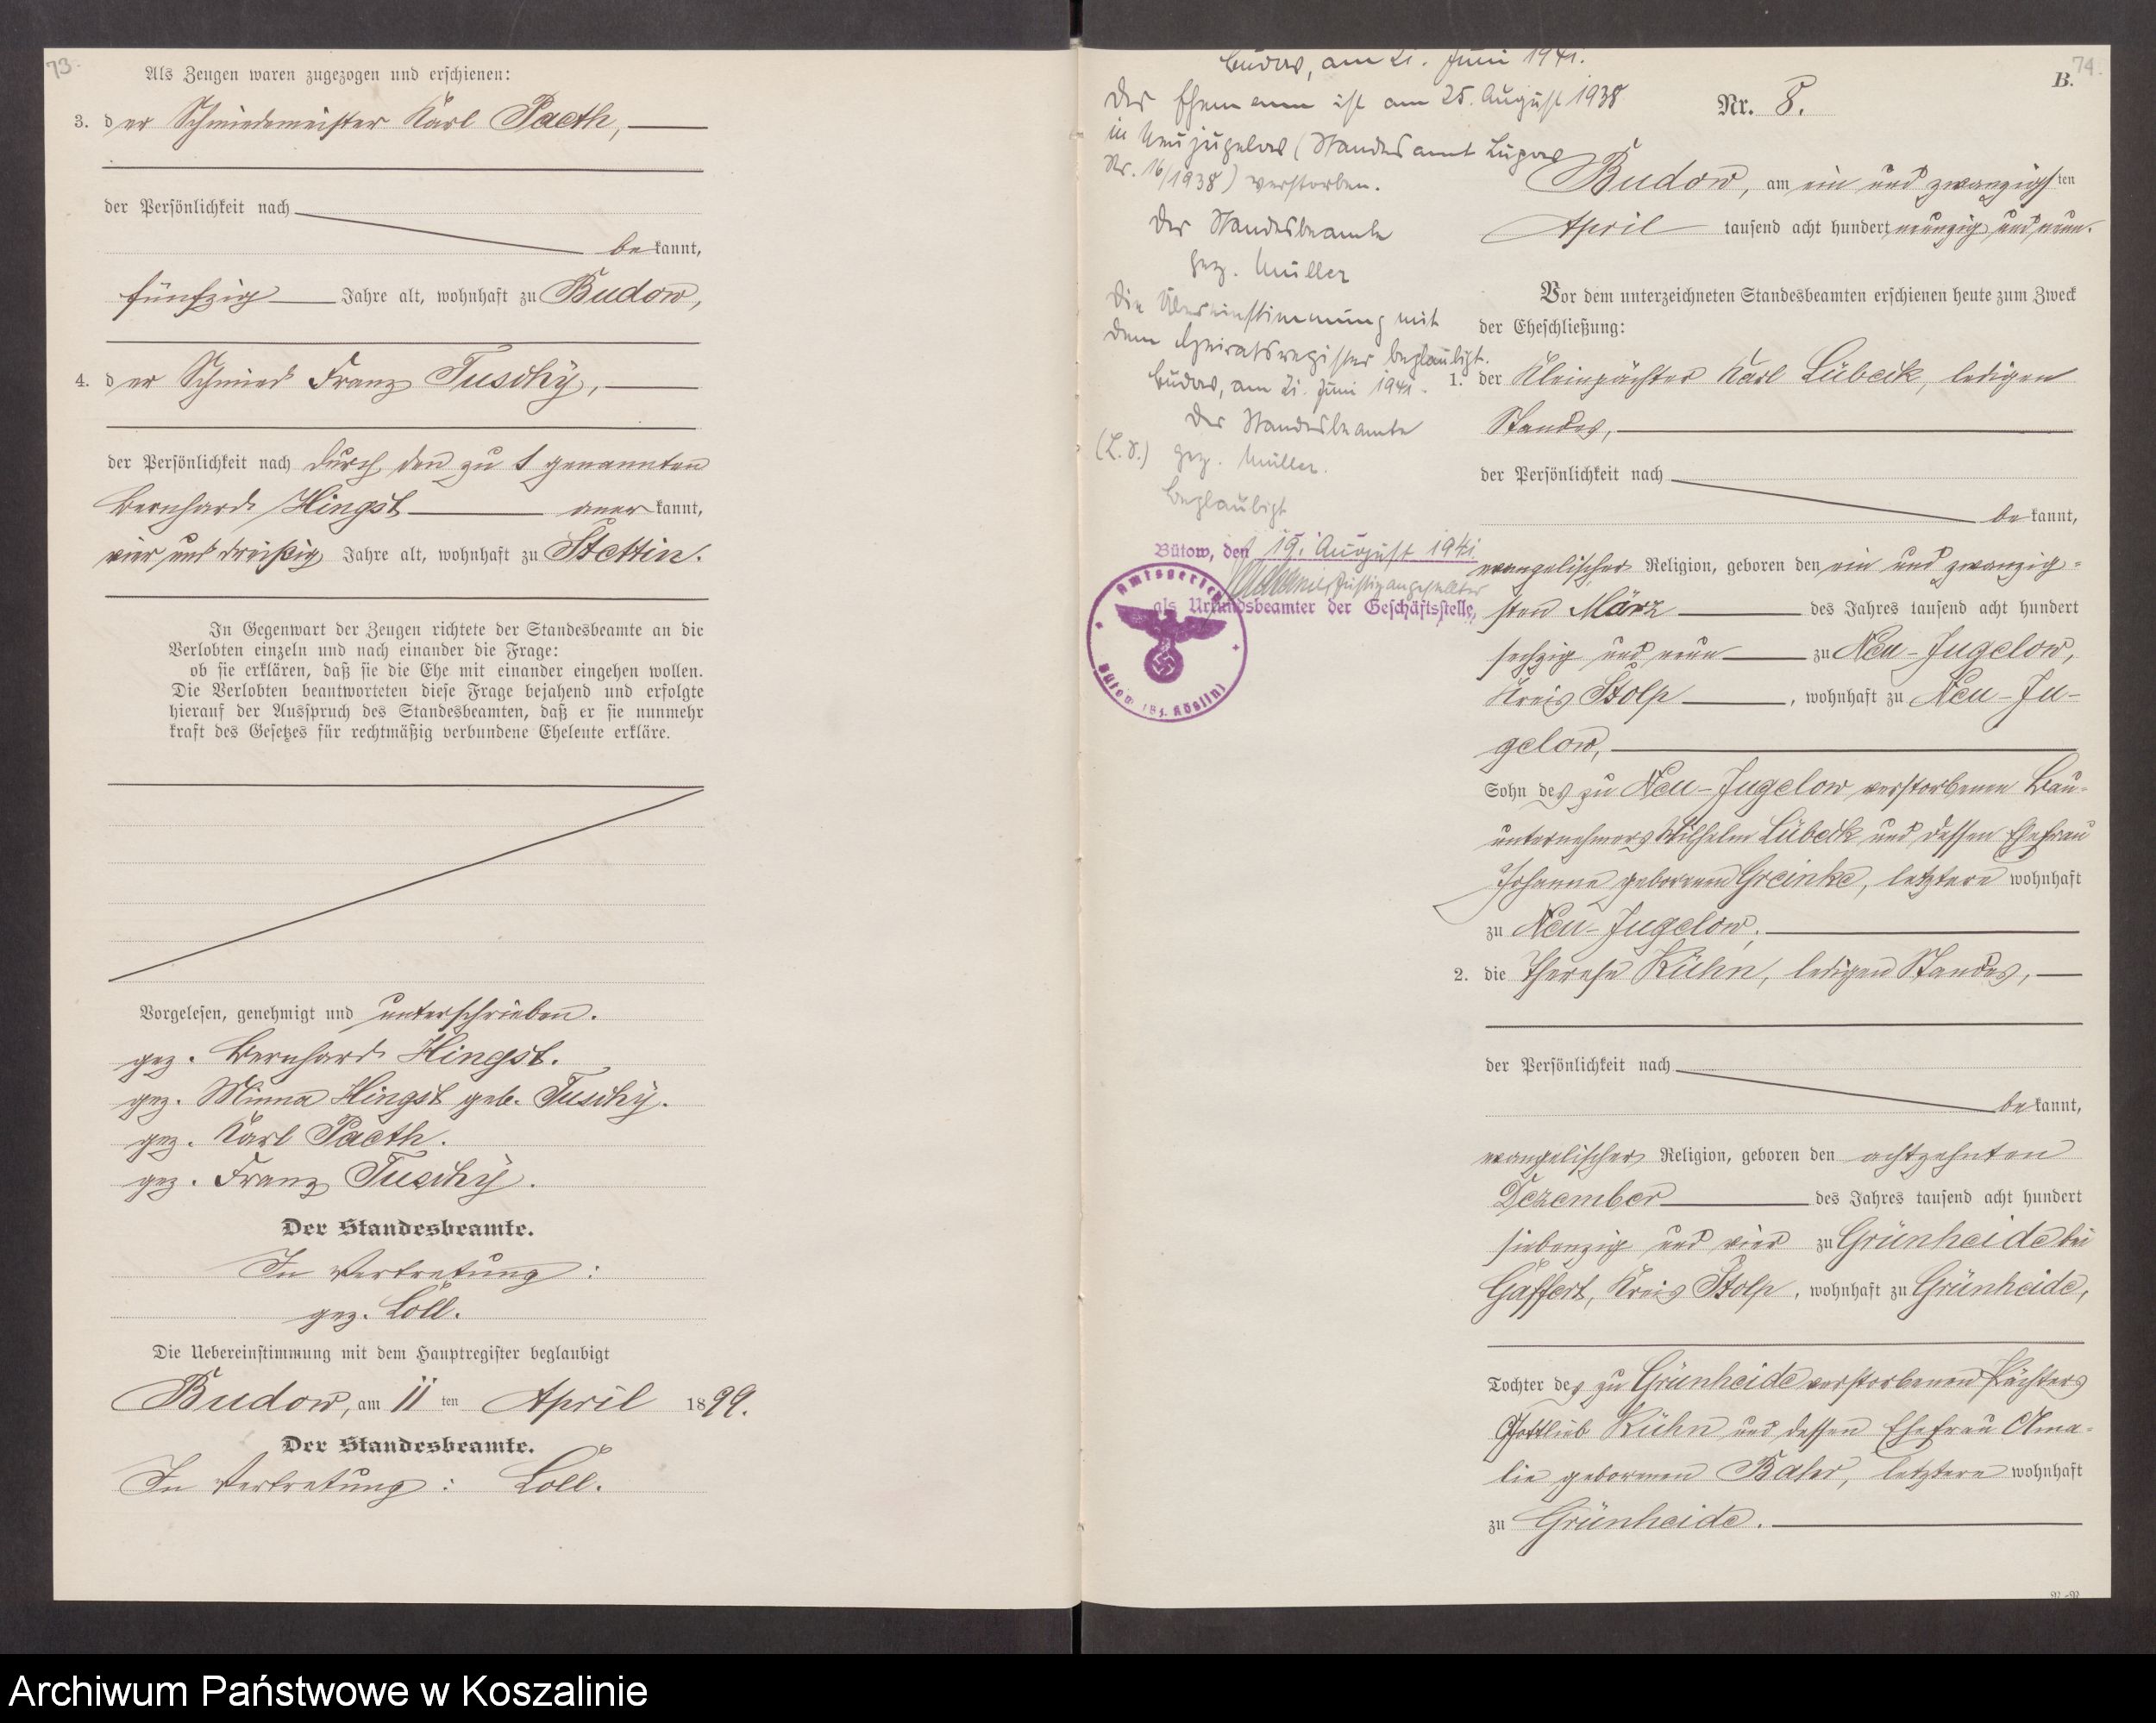 73.
Als Zeugen waren zugezogen und erschienen:
3. der Schmiedemeister Karl Paeth,
der Persönlichkeit nach
bekannt,
fünfzig Jahre alt, wohnhaft zu Budow,
4. der Schmied Franz Tuschy,
der Persönlichkeit nach durch den zu 1 genannten
Bernhard Hingst anerkannt,
vier und dreißig Jahre alt, wohnhaft zu Stettin.
In Gegenwart der Zeugen richtete der Standesbeamte an die
Verlobten einzeln und nach einander die Frage:
ob sie erklären, daß sie die Ehe mit einander eingehen wollen.
Die Verlobten beantworteten diese Frage bejahend und erfolgte
hierauf der Ausspruch des Standesbeamten, daß er sie nunmehr
kraft des Gesetzes für rechtmäßig verbundene Eheleute erkläre.
Vorgelesen, genehmigt und unterschrieben.
gez. Bernhard Hingst.
gez. Minna Hingst geb. Tuschy.
gez. Karl Paeth.
gez. Franz Tuschy.
Der Standesbeamte.
In Vertretung:
gez. Loll.
Die Uebereinstimmung mit dem Hauptregister beglaubigt
Budow, am 11 ten April 1899.
Der Standesbeamte.
In Vertretung: Loll.
74.
B.
Budow, am 21. Juni 1941.
Der Ehemann ist am 25. August 1938
in Neujugelow (Standesamt Lupow
Nr. 16/1938) verstorben.
Der Standesbeamte
gez. Müller
Die Übereinstimmung mit
dem Heiratsregister beglaubigt.
Budow, am 21. Juni 1941.
Der Standesbeamte
(L.S.) gez. Müller.
Beglaubigt
Bütow, den 19. August 1941.
Justizangestellter
als Urkundsbeamter der Geschäftsstelle,
Amtsgericht
Bütow (Bz. Köslin)
Nr. 8.
Budow, am ein und zwanzigsten
April tausend acht hundert neunzig und neun.
Vor dem unterzeichneten Standesbeamten erschienen heute zum Zweck
der Eheschließung:
1. der Kleinpächter Karl Lübeck, ledigen
Standes,
der Persönlichkeit nach
bekannt,
evangelischer Religion, geboren den ein und zwanzig-
sten März des Jahres tausend acht hundert
sechzig und neun zu Neu-Jugelow,
Kreis Stolp, wohnhaft zu Neu-Ju-
gelow,
Sohn des zu Neu-Jugelow verstorbenen Bau-
unternehmers Wilhelm Lübeck und dessen Ehefrau
Johanne geborenen Greinke, letztere wohnhaft
zu Neu-Jugelow;
2. die Therese Kühn, ledigen Standes,
der Persönlichkeit nach
bekannt,
evangelischer Religion, geboren den achtzehnten
Dezember des Jahres tausend acht hundert
siebenzig und vier zu Grünheide bei
Gaffert, Kreis Stolp, wohnhaft zu Grünheide,
Tochter des zu Grünheide verstorbenen Pächters
Gottlieb Kühn und dessen Ehefrau Ama-
lie geborenen, letztere wohnhaft
zu Grünheide.
Archiwum Państwowe w Koszalinie